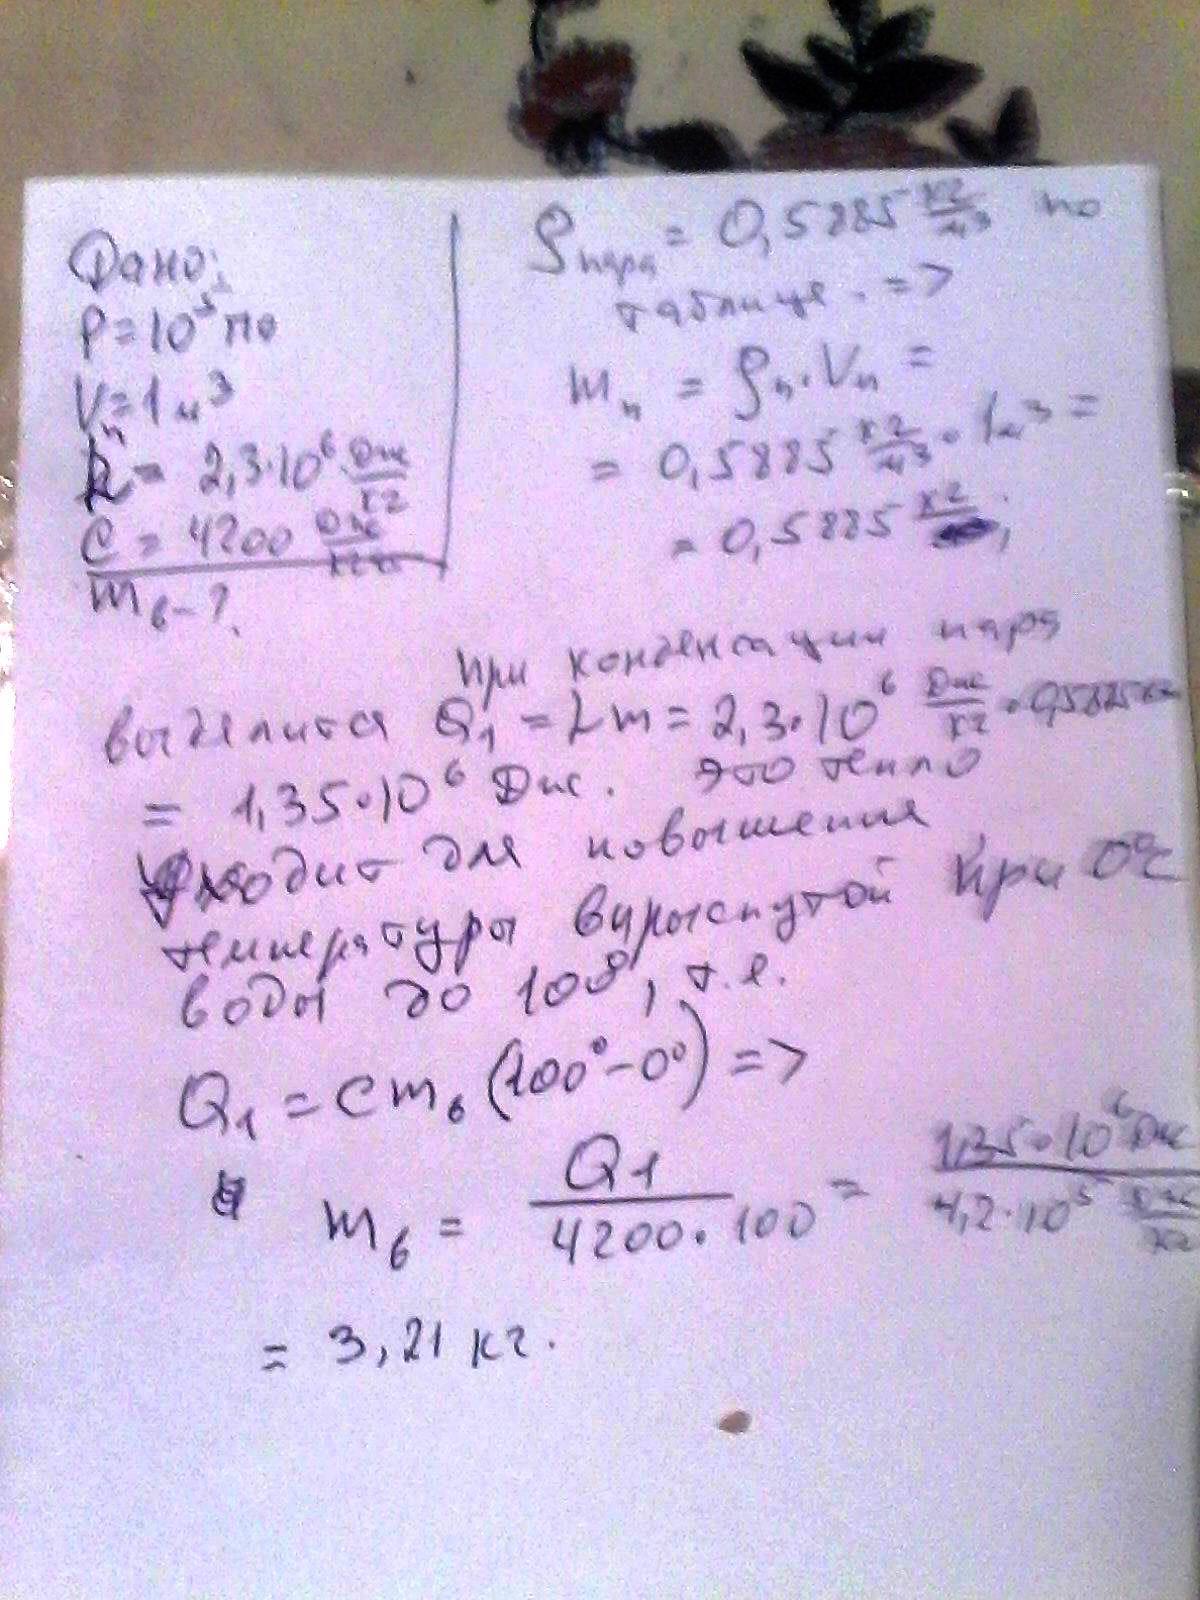 Дано:
P=10⁵ па
V=1м³
L= 2,3·10⁶ Дж/кг
C = 4200 Дж/кг
mв-?
ρпара = 0,5885 кг/м³ по
таблице. =>
mп = ρп·Vп =
= 0,5885 кг/м³ · 1м³ =
= 0,5885 кг
при конденсации пара
выделится Q₁ = Lm = 2,3·10⁶ Дж/кг · 0,5885кг
= 1,35·10⁶ Дж. это тепло
уходит для повышения
температуры впрыснутой при 0°C
воды до 100°, т.е.
Q₁ = cmв (100°-0°) =>
mв = Q₁/4200·100 = 1,35·10⁶ Дж/4,2·10⁵ Дж/кг
= 3,21 кг.